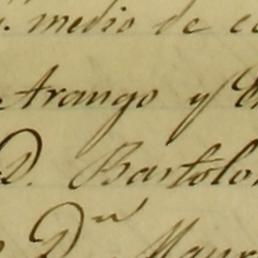 medio de
Arango y
D. Bartolo
Dn Maur